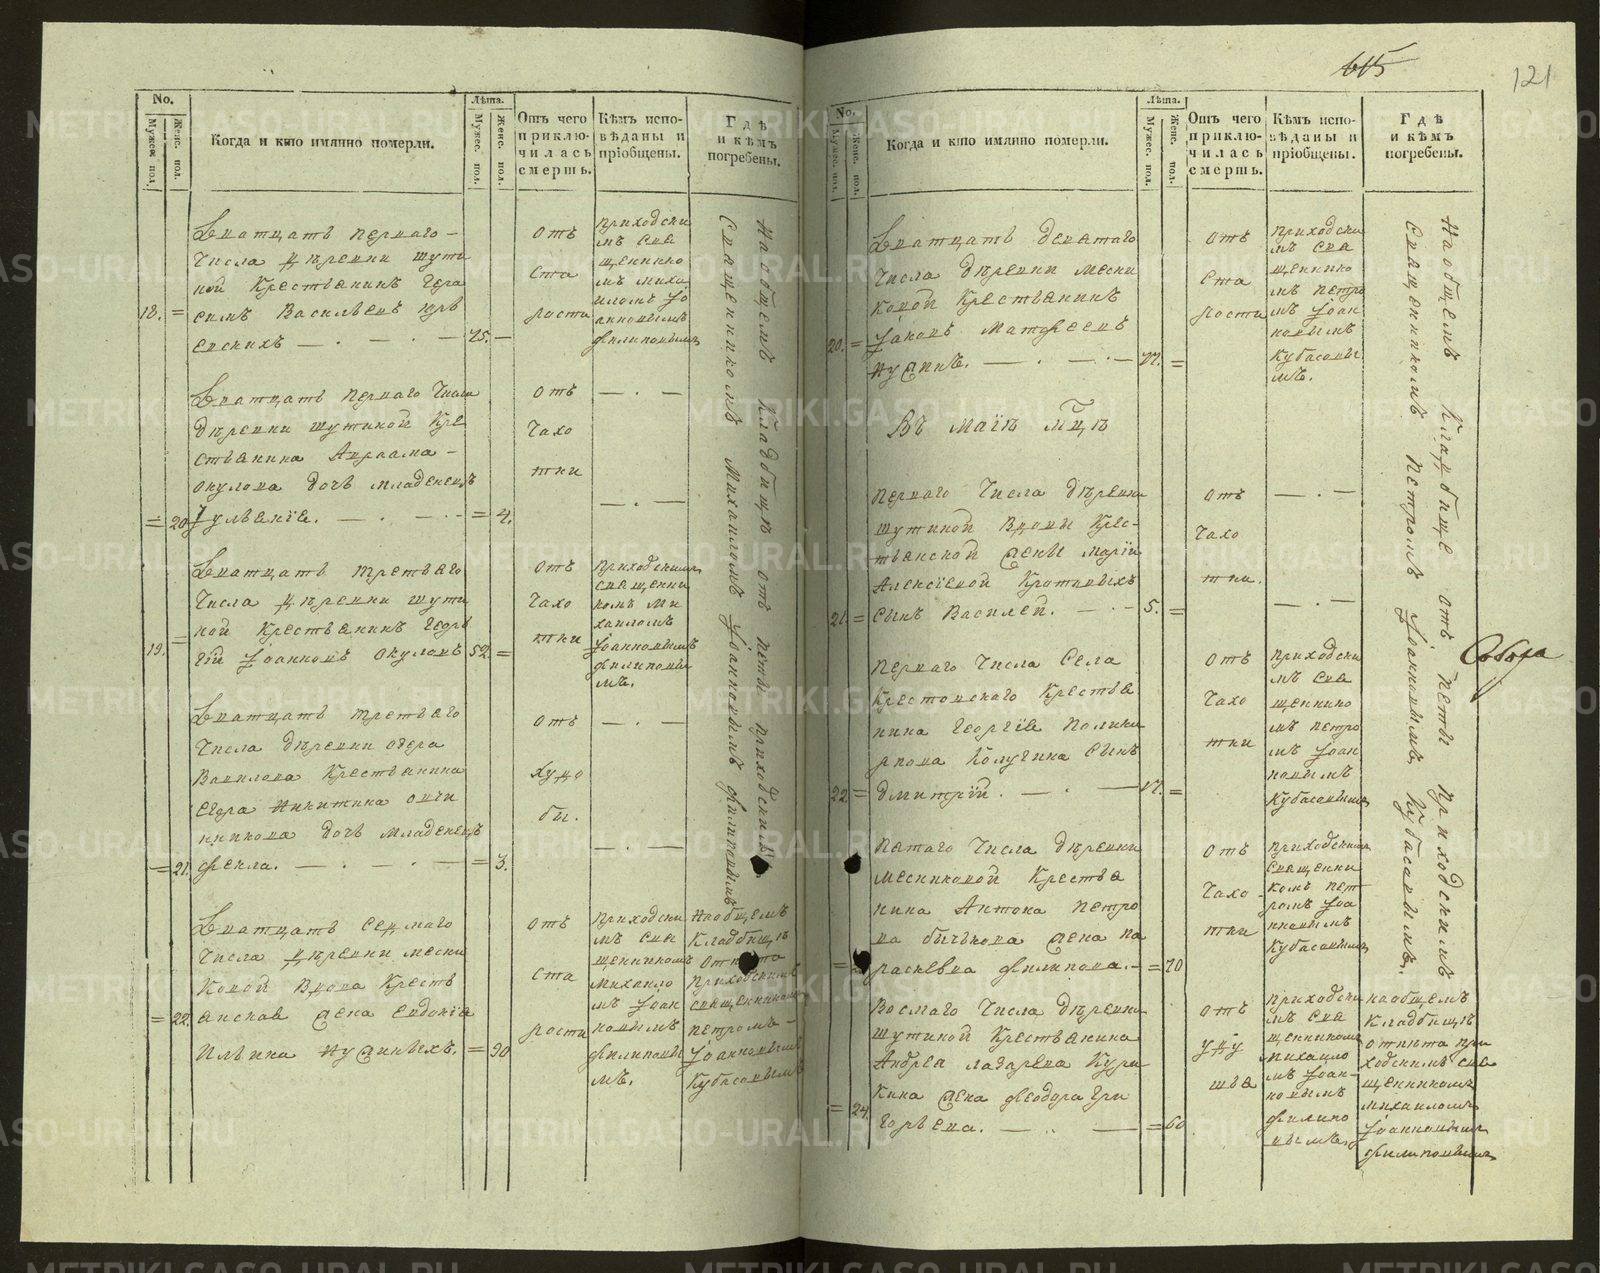 615
121
No.
Мужеск. пол.
Женс. пол.
Когда и кто имянно померли.
Лѣта.
Мужес. пол.
Женс. пол.
Отъ чего приключилась смерть.
Кѣмъ исповѣданы и пріобщены.
Гдѣ и кѣмъ погребены.
Дватцать перваго –
числа деревни шути
ной крестьянинъ Гера
симъ Васильевъ
18. =
75. –
отъ
ста
рости
приходски
мъ свя
щеннико
мъ михаи
ломъ Іо
анновымъ
филиповымъ
На общемъ кладбищѣ отъ петы приходскимъ
священникомъ Михаиломъ Іоанновымъ филиповымъ
Дватцать перваго числа
деревни шутиной кре
стьянина Авраама –
окулова дочь младенецъ
Іуліаніе. – . –
= 20
= 4.
отъ
чахо
тки
Дватцать третьяго
числа деревни шути
ной крестьянинъ Геор
гій Іоанновъ окуловъ
19. =
52. =
отъ
чахо
тки
приходскимъ
священни
комъ ми
хаиломъ
Іоанновымъ
филиповы
мъ.
Дватцать третьяго
числа деревни озера
Вавилова крестьянина
Егора никитина овчи
нникова дочь младенецъ
фекла. – . –
= 21.
= 3.
отъ
худо
бы.
Дватцать седмаго
числа деревни месни
ковой вдова кресть
янская жена Евдокія
Ильина нужиныхъ.
= 22.
= 90
отъ
ста
рости
приходски
мъ свя
щенникомъ
михаило
мъ Іоан
новымъ
филиповы
мъ.
на общемъ
кладбищѣ
отпѣта
приходскимъ
священникомъ
петромъ –
Іоанновымъ
кубасовымъ
No.
Мужес. пол.
Женс. пол.
Когда и кто имянно померли.
Лѣта.
Мужес. пол.
Женс. пол.
Отъ чего приключилась смерть.
Кѣмъ исповѣданы и пріобщены.
Гдѣ и кѣмъ погребены.
Дватцать девятаго
числа деревни месни
ковой крестьянинъ
Іаковъ Матфеевъ
нужинъ. – . –
20. =
77. =
отъ
ста
рости
приходски
мъ свя
щеннико
мъ петро
мъ Іоан
новымъ
кубасовы
мъ.
На общемъ кладбище отъ петы приходскимъ
священникомъ петромъ Іоанновымъ кубасовымъ.
Въ маіѣ мцѣ
перваго числа деревни
шутиной вдовы крес-
тьянской жены Маріи
Алексіевой кротовыхъ
сынъ Василей. – . –
21. =
5. =
отъ
чахо
тки.
перваго числа села
крестовскаго крестья
нина Георгіе полика
рпова Колугина сынъ
дмитрій. – . –
22. =
17. =
отъ
чахо
тки
приходски
мъ свя
щеннико
мъ петро
мъ Іоан
новымъ
кубасовымъ
пятаго числа деревни
месниковой крестья
нина Антона петро
ва бычкова жена па
раскевва филипова. –
= 70
отъ
чахо
тки
приходскимъ
священни
комъ пет
ромъ Іоа
нновымъ
кубасовымъ
Восмаго числа деревни
шутиной крестьянина
Андрея лазарева Кури
кина жена феодора Гри
горьева. – . –
= 24.
= 60
отъ
уду
шья
приходски
мъ свя
щенникомъ
михаило
мъ Іоан-
новымъ
филипо
вымъ.
на общемъ
кладбищѣ
отпѣта при
ходскимъ свя
щенникомъ
михаиломъ
Іоанновымъ
филиповымъ